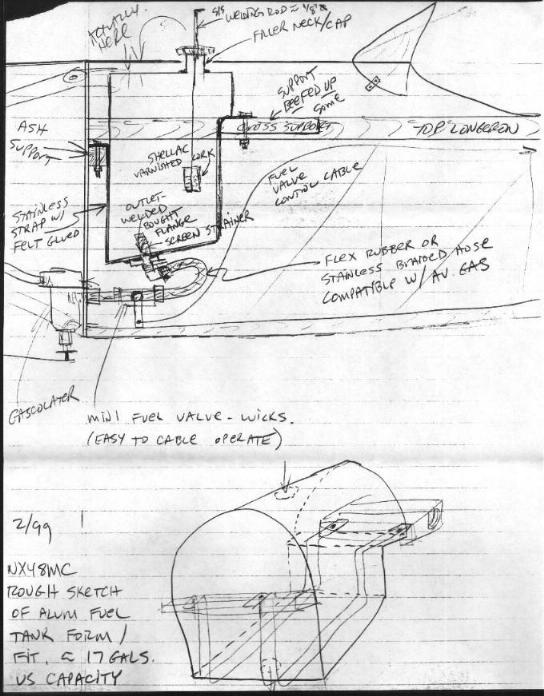 ACTUALLY
HERE
S/S
WELDING ROD ≈ 1/8"Ø
FILLER NECK/CAP
SUPPORT
BEEFED UP
SOME
CROSS SUPPORT
TOP LONGERON
ASH
SUPPORT
SHELLAC
VARNISHED CORK
FUEL
VALVE
CONTROL CABLE
STAINLESS
STRAP W/
FELT GLUED
OUTLET-
WELDED
BOUGHT
FLANGE
SCREEN STRAINER
FLEX RUBBER OR
STAINLESS BRAIDED HOSE
COMPATIBLE W/ AV. GAS
GASCOLATER
MINI FUEL VALVE - WICKS.
(EASY TO CABLE OPERATE)
2/99
NX48MC
ROUGH SKETCH
OF ALUM FUEL
TANK FORM/
FIT. ≈ 17 GALS.
US CAPACITY